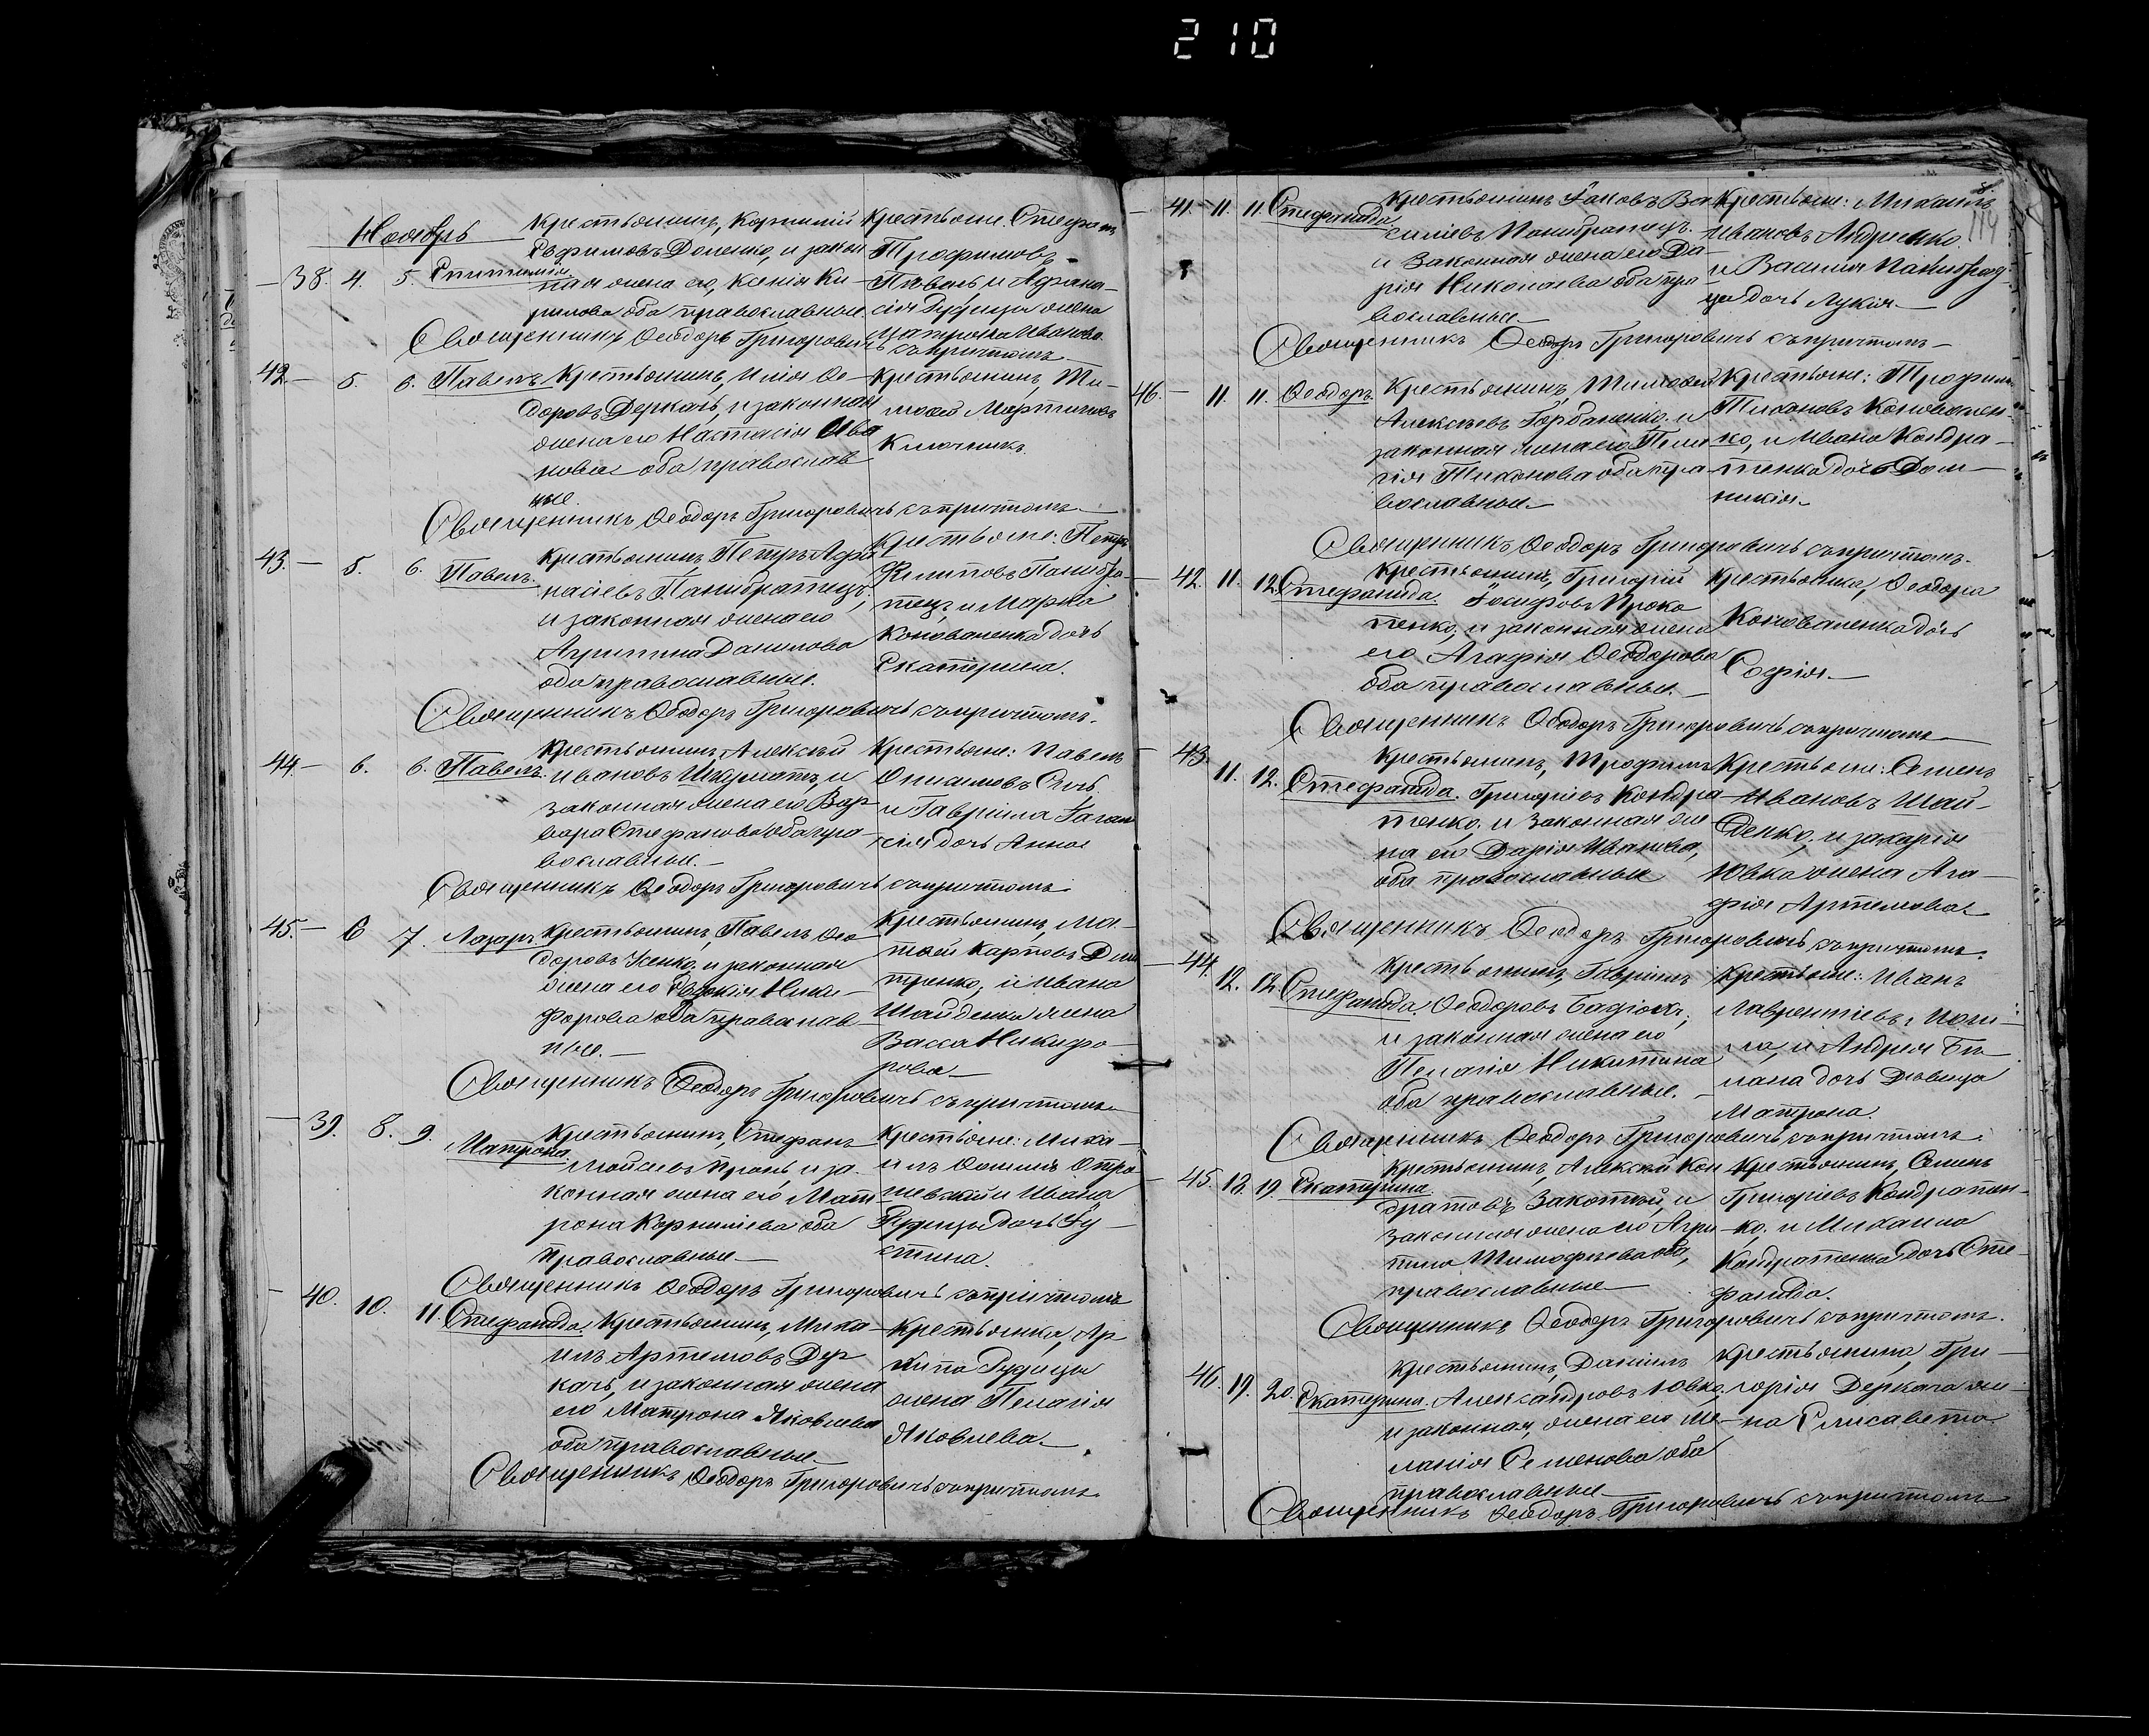 210
Ноябрь
Крестьянинъ, Корнилій
Крестьяне: Стефанъ
Ефимовъ Доненко, и закон
Трофимовъ
38. 4. 5. Епитимія
ная жена его, Ксенія Ки-
и Афана-
рилова оба православные
сія Рудицы жена
Матрона Иванова
Священникъ Ѳеодоръ Григоровичъ съ причтомъ
42. 5. 6. Павелъ
Крестьянинъ, Илія Ѳе-
доровъ Деркачъ, и законная
жена его Настасія Ива
нова оба православ
ные.
Крестьянинъ, Ти-
моѳей Мартиновъ
Ключникъ.
Священникъ Ѳеодоръ Григоровичъ съ причтомъ
43. 5. 6. Павелъ.
Крестьянинъ, Петръ Афа
насіевъ Панибратецъ,
и законная жена его
Агрипина Данилова
оба православные.
Крестьяне: Петръ
Филиповъ Панибра-
тецъ, и Марка
Коноваленка дочь
Екатерина.
Священникъ Ѳеодоръ Григоровичъ съ причтомъ.
44. 6. 6. Павелъ.
Крестьянинъ, Алексѣй
Ивановъ и
законная жена его Вар-
вара Стефанова оба пра-
вославные.
Крестьяне: Павелъ
Онисимовъ
и Гавріила
дочь Анна
Священникъ Ѳеодоръ Григоровичъ съ причтомъ
45. 6 7. Лазарь.
Крестьянинъ, Павелъ Ѳео
доровъ Усенко, и законная
жена его Ники-
форова оба православ-
ные.
Крестьянинъ, Ма-
тѳей Карповъ Дми
тренко, и Ивана
Шайденка жена
Васса Никифо-
рова
Священникъ Ѳеодоръ Григоровичъ съ причтомъ
39. 8. 9. Матрона.
Крестьянинъ, Стефанъ
Мойсеевъ Пронь, и за-
конная жена его Мат-
рона Корниліева оба
православные
Крестьяне: Миха-
илъ
и Ивана
Рудицы дочь Іу-
стина.
Священникъ Ѳеодоръ Григоровичъ съ причтомъ
40. 10. 11. Стефанида.
Крестьянинъ, Миха-
илъ Артемовъ Дер
качъ, и законная жена
его Матрона Яковлева
оба православные
Крестьянина, Ар
хипа Рудицы
жена Пелагія
Яковлева.
Священникъ Ѳеодоръ Григоровичъ съ причтомъ
114
41. 11. 11. Стефанида
Крестьянинъ Іаковъ Ва
силіевъ Панибратецъ
и законная жена его Да-
рія Николаева оба пра
вославные
Крестьяне: Михаилъ
Ивановъ Андреенко
и Василія Панибрат-
ца дочь Лукія.
Священникъ Ѳеодоръ Григоровичъ съ причтомъ
46. 11. 11. Ѳеодоръ.
Крестьянинъ, Тимоѳей
Алексѣевъ Горбаненко, и
законная жена его Пела
гія Тихонова оба пра-
вославные
Крестьяне: Трофимъ
Тихоновъ Коновален-
ко, и Ивана Кондра-
тенка дочь Дом-
никія.
Священникъ Ѳеодоръ Григоровичъ съ причтомъ.
42. 11. 12. Стефанида.
Крестьянинъ, Григорій
Іосифовъ Проко
пенко, и законная жена
его Агафія Ѳеодорова
оба православные.
Крестьянина, Ѳеодора
Коноваленка дочь
Софія.
Священникъ Ѳеодоръ Григоровичъ съ причтомъ
43. 11. 12. Стефанида.
Крестьянинъ, Трофимъ
Григоріевъ Кондра-
тенко, и законная же
на его Дарія Иванова,
оба православные
Крестьяне: Семенъ
Ивановъ Шай-
денко, и Захарія
Ювка жена Ага-
фія Артемова
Священникъ Ѳеодоръ Григоровичъ съ причтомъ.
44. 12. 12. Стефанида.
Крестьянинъ, Гавріилъ
Ѳеодоровъ Бадіонъ,
и законная жена его
Пелагія Никитина
оба православные.
Крестьяне: Иванъ
Лаврентіевъ
и Андрея Би-
лана дочь дѣвица
Матрона.
Священникъ Ѳеодоръ Григоровичъ съ причтомъ.
45. 18. 19. Екатерина.
Крестьянинъ, Алексѣй Кон
дратовъ Закотній, и
законная жена его Агри
пина Тимофѣева оба,
православные
Крестьянинъ, Семенъ
Григоріевъ Кондратен-
ко, и Михаила
Кондратенка дочь Сте-
фанида.
Священникъ Ѳеодоръ Григоровичъ съ причтомъ.
46. 19. 20. Екатерина.
Крестьянинъ, Даніилъ
Александровъ Ювко,
и законная, жена его Ме-
ланія Семенова оба
православные
Крестьянина, Гри-
горія Деркача же-
на Елисавета
Священникъ Ѳеодоръ Григоровичъ съ причтомъ